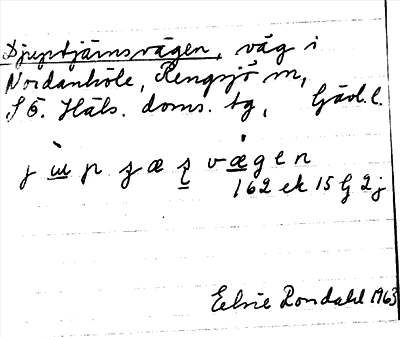 Djuptjärnsvägen, väg i
Nordanhöle, Rengsjö sn,
S Ö. Häls. doms. tg, Gävl. l.
vägen
162 ek 15 G 2 j
Elsie Rondahl 1963